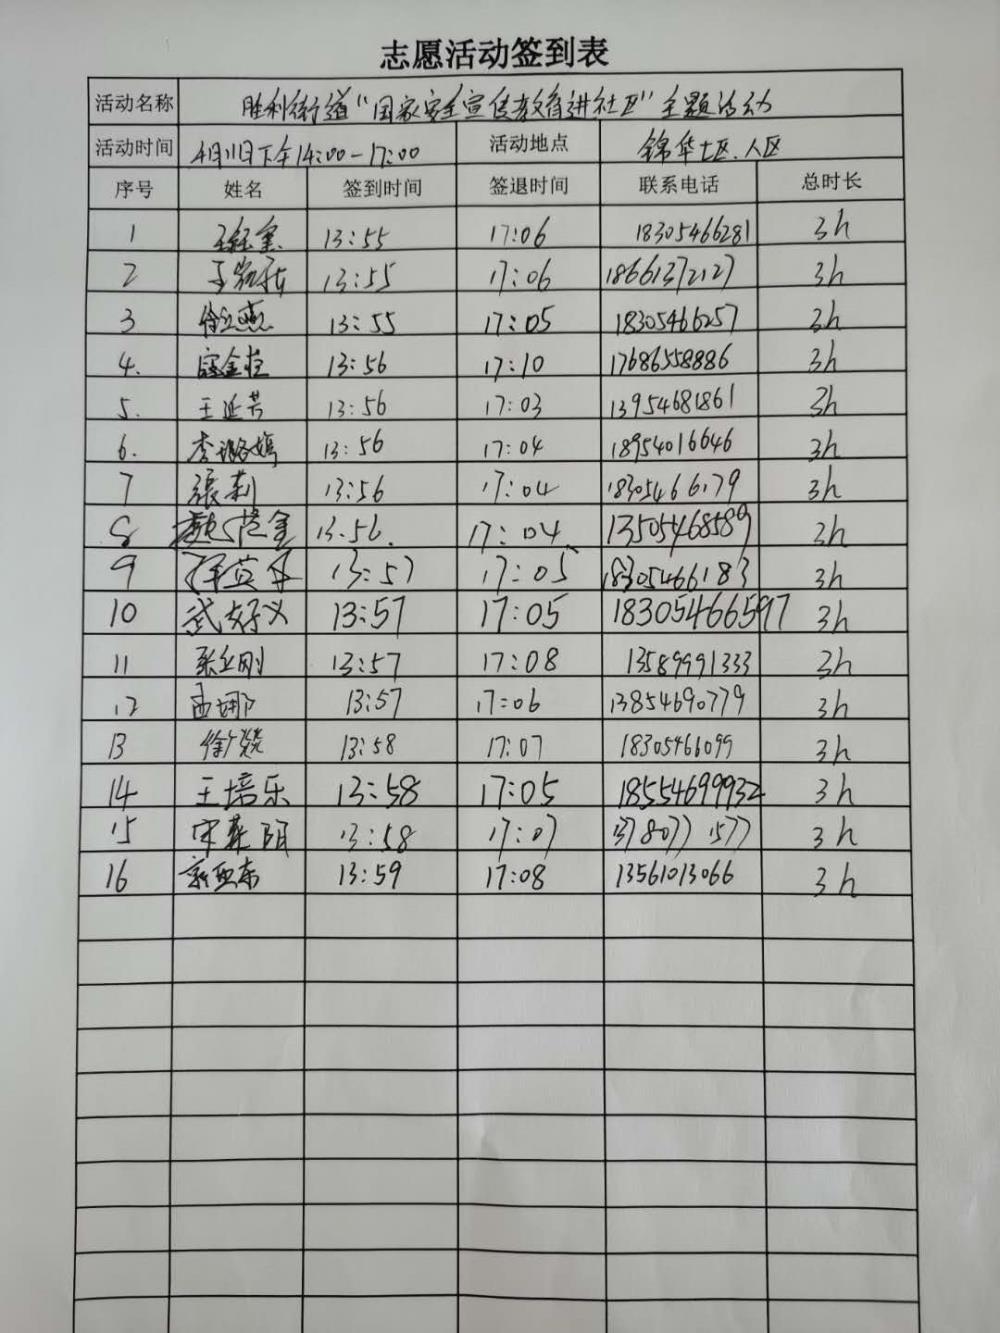 志愿活动签到表
活动名称 胜利街道“国家安全宣传教育进社区”主题活动
活动时间 4月11日下午14:00-17:00 活动地点 锦华七区.八区
序号 姓名 签到时间 签退时间 联系电话 总时长
1 13:55 17:06 18305466281 3h
2 13:55 17:06 18661372127 3h
3 徐立燕 13:55 17:05 18305466257 3h
4. 13:56 17:10 17686558886 3h
5. 王延芳 13:56 17:03 13954681861 3h
6. 李璐嫣 13:56 17:04 18954016646 3h
7 張莉 13:56 17:04 18305466179 3h
8 13.56. 17:04 13505468589 3h
9 13:57 17:05 18305466183 3h
10 武好义 13:57 17:05 18305466597 3h
11 张立刚 13:57 17:08 13589991333 3h
12 孟娜 13:57 17:06 13854690779 3h
13 徐广燚 13:58 17:07 18305466099 3h
14 王培乐 13:58 17:05 18554699932 3h
15 13:58 17:07 13780771577 3h
16 郭亚东 13:59 17:08 13561013066 3h